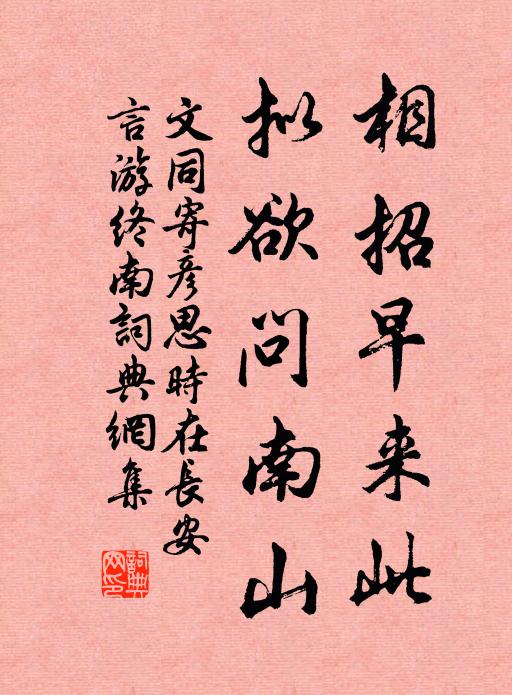 相招早来此
拟欲问南山
文同寄彦思時在長安
言游终南詞典網集
詞典网印